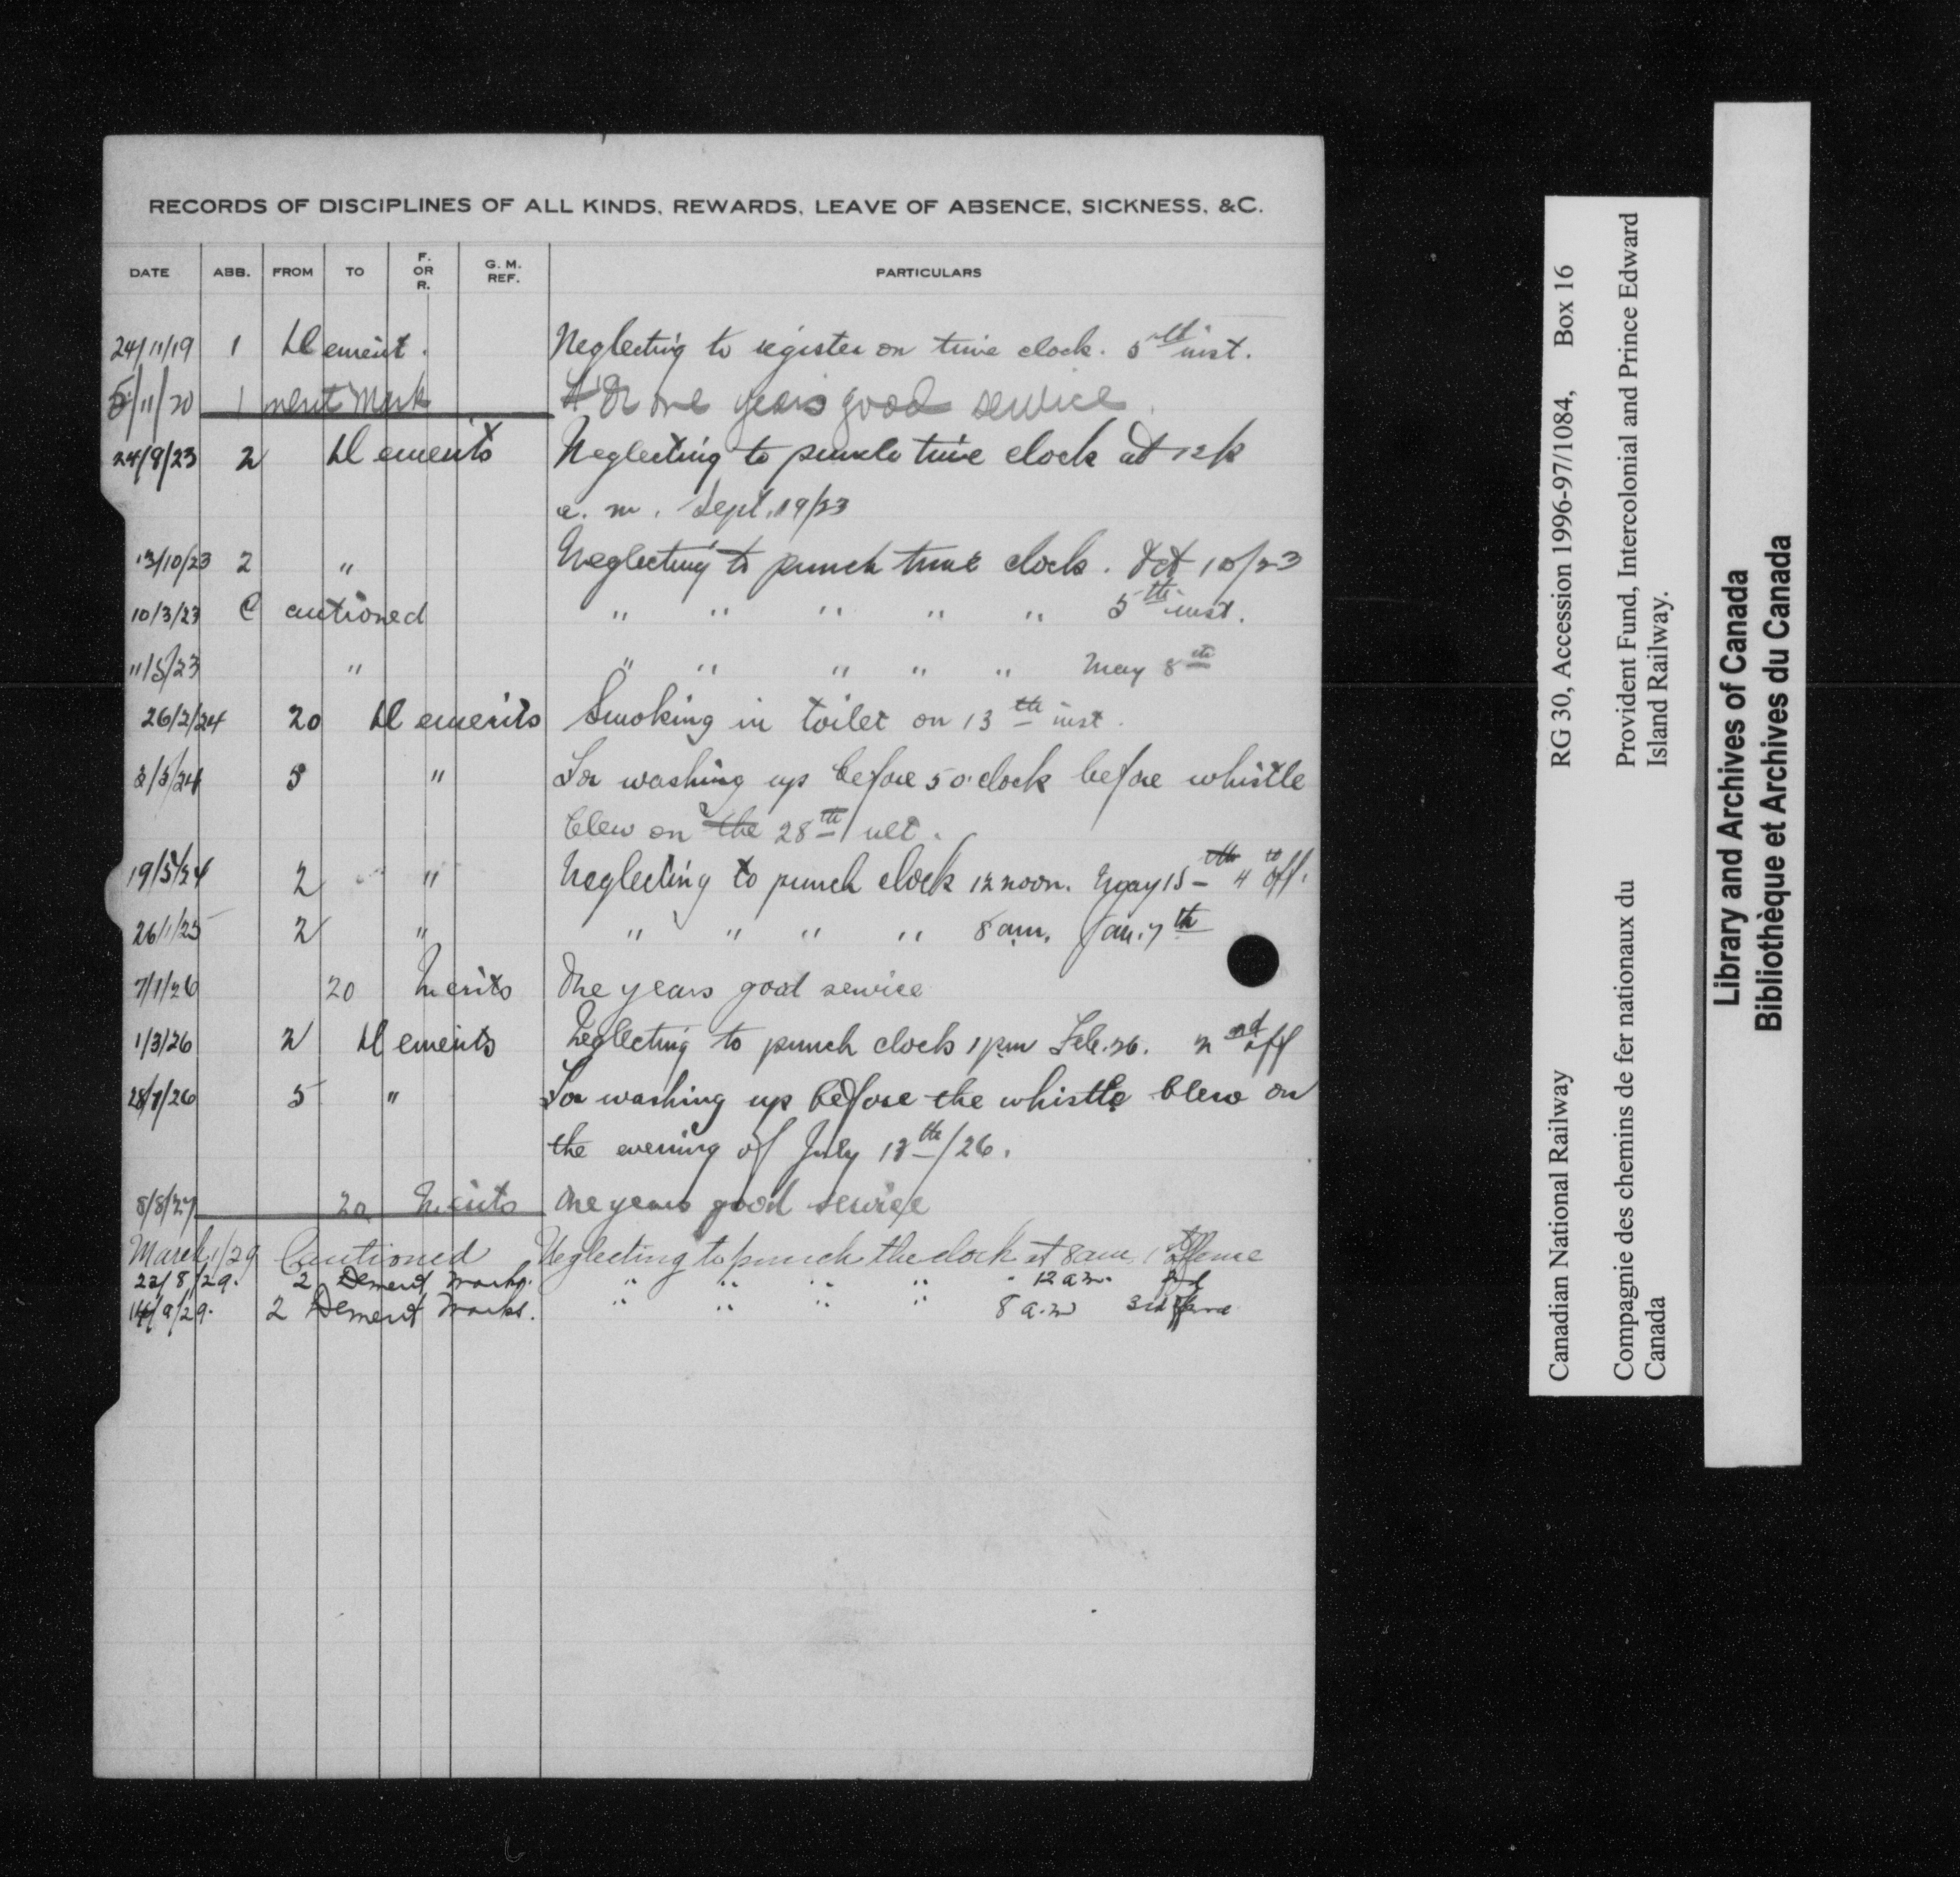 RECORDS OF DISCIPLINES OF ALL KINDS, REWARDS, LEAVE OF ABSENCE, SICKNESS, &C.
DATE ABB. FROM TO F. OR R. G. M. REF. PARTICULARS
24/11/19 1 Demerit. Neglecting to register on time clock. 5th inst.
5/11/20 1 merit Mark For one years good service.
24/9/23 2 Demerits Neglecting to punch time clock at 12
a. m. Sept. 19/23
13/10/23 2 " Neglecting to punch time clock. Oct 10/23
10/3/23 Cautioned " " " " " 5th inst.
11/5/23 " " " " " " May 8th
26/2/24 20 Demerits Smoking in toilet on 13th inst.
3/3/24 5 " For washing up before 5 o'clock before whistle
blew on the 28th ult.
19/5/24 2 " Neglecting to punch clock 12 noon. May 15th 4th off.
26/1/25 2 " " " " " 8 am. Jan. 7th
7/1/26 20 Merits One years good service
1/3/26 2 Demerits Neglecting to punch clock 1 pm Feb. 26. 2nd off
28/7/26 5 " For washing up before the whistle blew on
the evening of July 13th/26.
8/8/27 20 Merits One years good service
March 1/29 Cautioned Neglecting to punch the clock at 8am 1st offence
22/8/29. 2 Demerit marks. " " " " " 12 a.m. 2nd
14/9/29. 2 Demerit marks. " " " " 8 a.m 3rd offence
Canadian National Railway RG 30, Accession 1996-97/1084, Box 16
Compagnie des chemins de fer nationaux du Canada
Provident Fund, Intercolonial and Prince Edward Island Railway.
Library and Archives of Canada
Bibliothèque et Archives du Canada